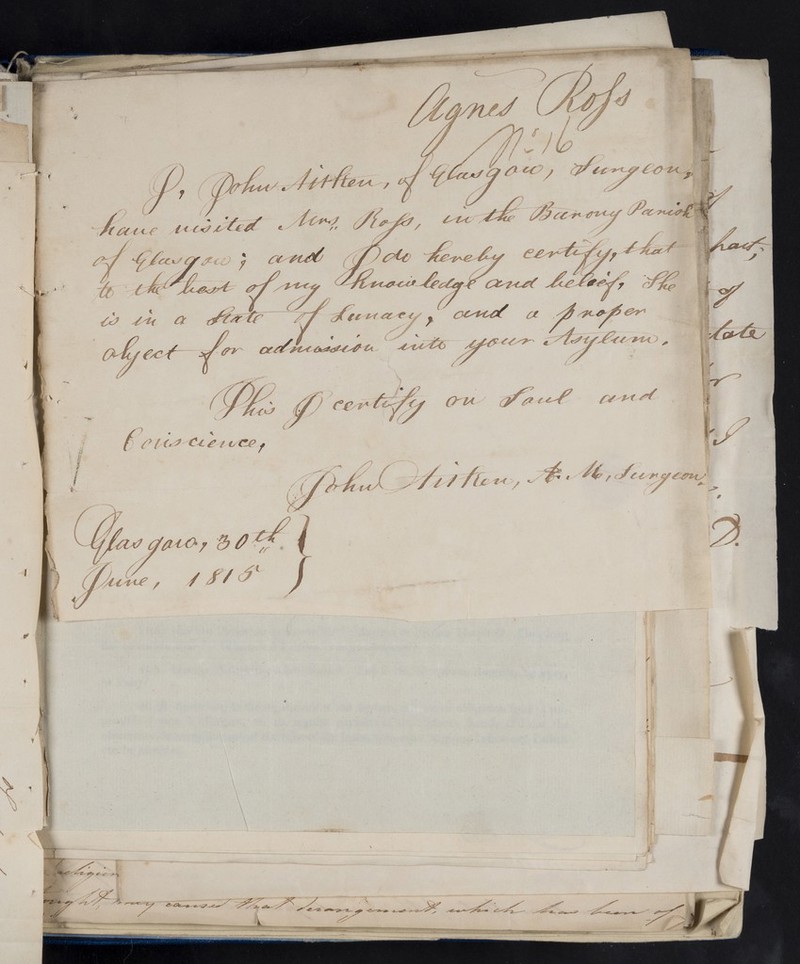 Agnes Ross
No. 16
I, John Aitken, of Glasgow, Surgeon,
have visited Mrs. Ross, in the Barony Parish
of Glasgow; and I do hereby certify, that
to the best of my knowledge and belief, She
is in a State of Lunacy, and a proper
object for admission into your Asylum.
This I certify on Saul and
Conscience,
John Aitken, A. M., Surgeon.
Glasgow, 30th
June, 1815
of
hart;
of
tate
I
D.
religion
might, may caused that derangement, which has been of